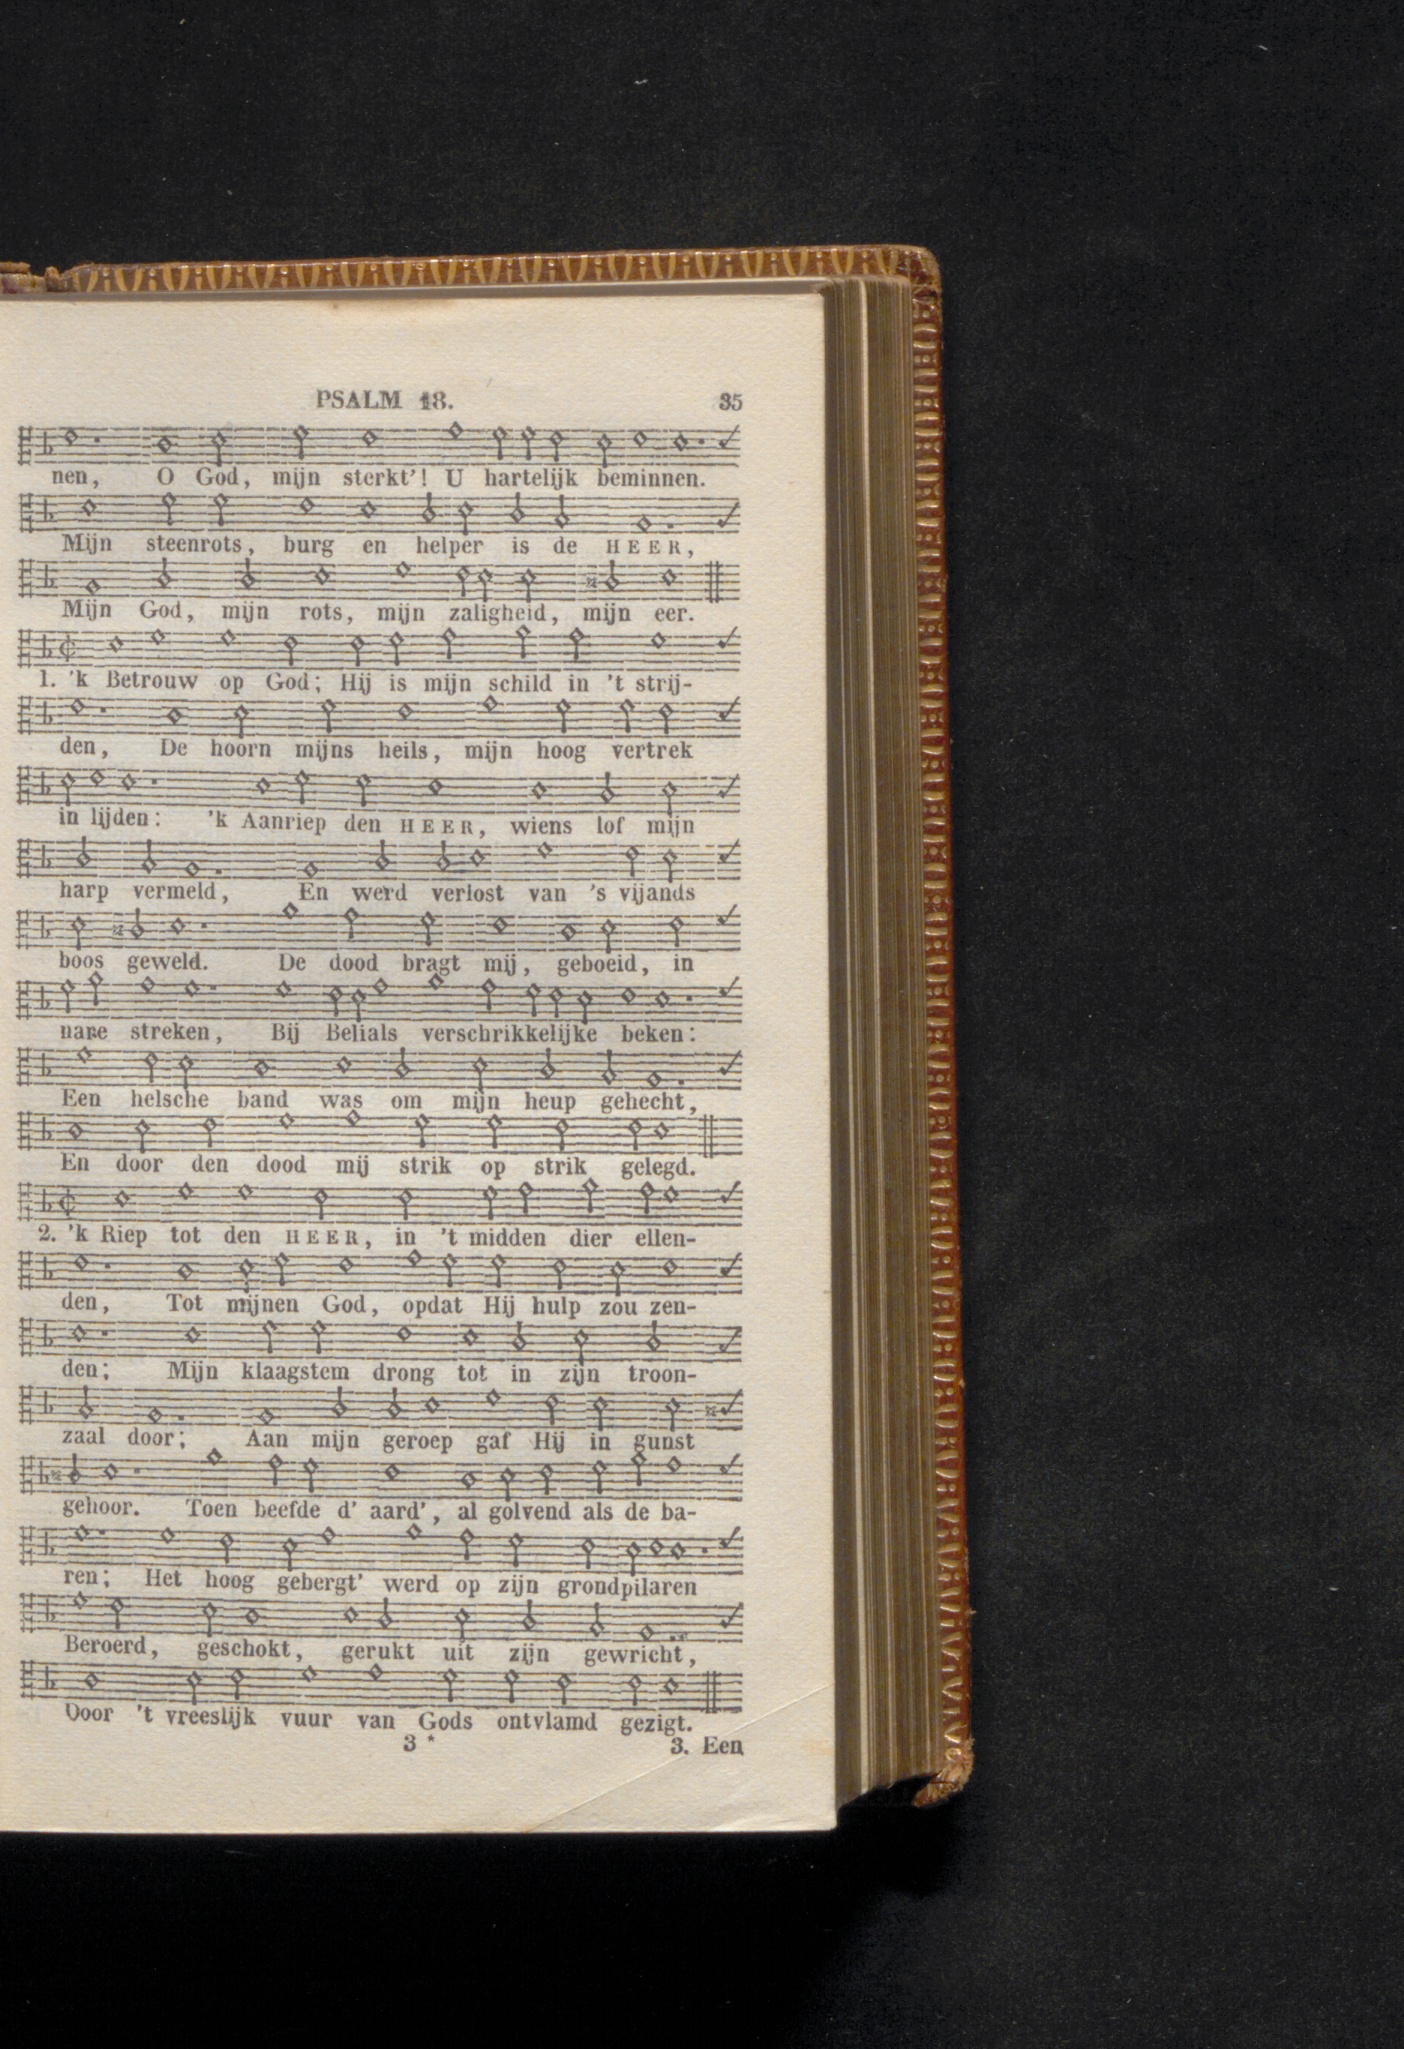 PSALM 18. 35
nen, O God, mijn sterkt'! U hartelijk beminnen.
Mijn steenrots, burg en helper is de HEER,
Mijn God, mijn rots, mijn zaligheid, mijn eer.
1. 'k Betrouw op God; Hij is mijn schild in 't strij-
den, De hoorn mijns heils, mijn hoog vertrek
in lijden: 'k Aanriep den HEER, wiens lof mijn
harp vermeld, En werd verlost van 's vijands
boos geweld. De dood bragt mij, geboeid, in
nare streken, Bij Belials verschrikkelijke beken:
Een helsche band was om mijn heup gehecht,
En door den dood mij strik op strik gelegd.
2. 'k Riep tot den HEER, in 't midden dier ellen-
den, Tot mijnen God, opdat Hij hulp zou zen-
den; Mijn klaagstem drong tot in zijn troon-
zaal door; Aan mijn geroep gaf Hij in gunst
gehoor. Toen beefde d' aard', al golvend als de ba-
ren; Het hoog gebergt' werd op zijn grondpilaren
Beroerd, geschokt, gerukt uit zijn gewricht,
Door 't vreeslijk vuur van Gods ontvlamd gezigt.
3 * 3. Een